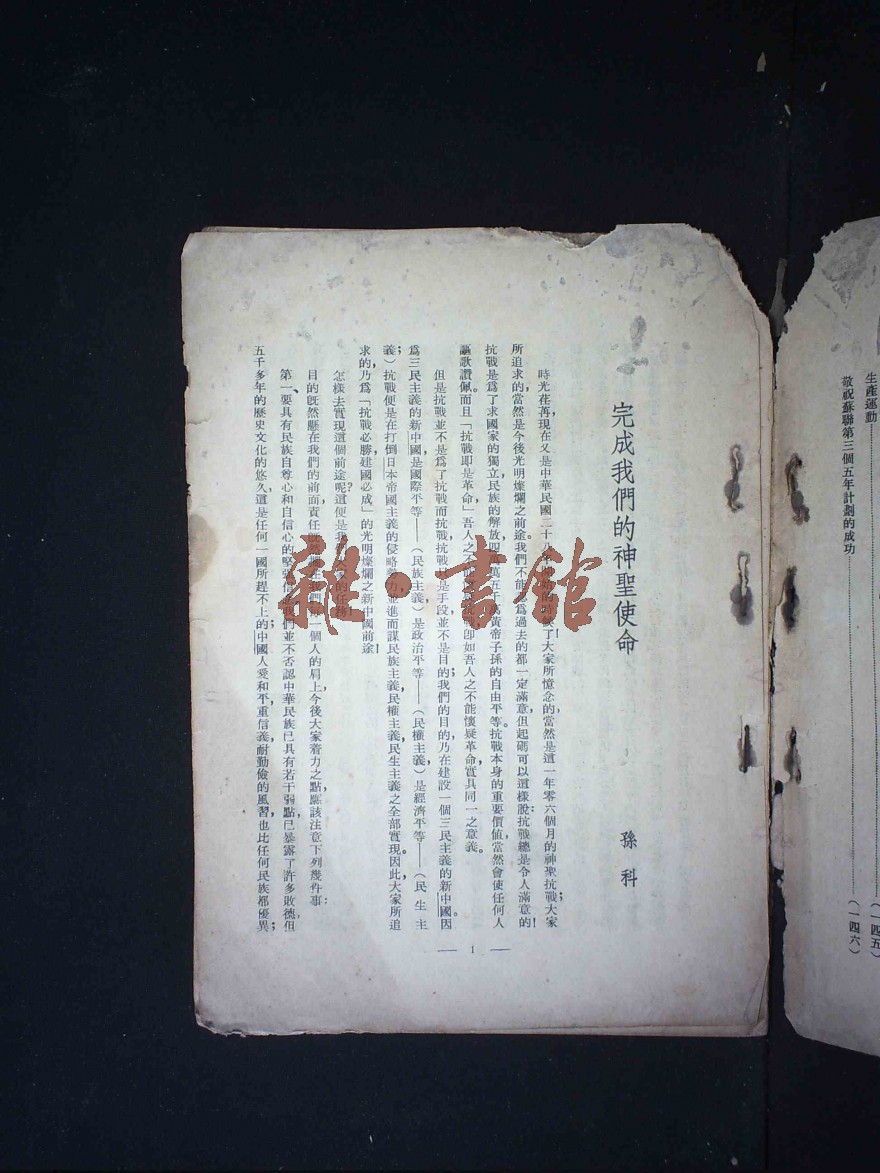 生產運動 (一四五)
敬祝蘇聯第三個五年計劃的成功 (一四六)
完成我們的神聖使命
孫科
時光荏苒,現在又是中華民國二十八年 的時候了!大家所憶念的當然是這一年零六個月的神聖抗戰;大家
所追求的當然是今後光明燦爛之前途。我們不能 爲過去的都一定滿意,但起碼可以這樣說:抗戰總是令人滿意的!
抗戰是爲了求國家的獨立,民族的解放,四萬萬五千萬黃帝子孫的自由平等。抗戰本身的重要價値,當然會使任何人
謳歌讚佩。而且「抗戰卽是革命」吾人之不能 抗戰,卽如吾人之不能懷疑革命,實具同一之意義。
但是抗戰並不是爲了抗戰而抗戰,抗戰 是手段,並不是目的;我們的目的,乃在建設一個三民主義的新中國。因
爲三民主義的新中國,是國際平等——(民族主義)是政治平等——(民權主義)是經濟平等——(民生主
義);抗戰便是在打倒日本帝國主義的侵略 力,並進而謀民族主義,民權主義,民生主義之全部實現。因此,大家所追
求的,乃爲「抗戰必勝,建國必成」的光明燦爛之新中國前途!
怎樣去實現這個前途呢?這便是我 大家的任務
目的旣然懸在我們的前面,責任旣然 在我們 一個人的肩上,今後大家着力之點,應該注意下列幾件事:
第一、要具有民族自尊心和自信心的堅强信 我們並不否認中華民族已具有若干弱點,已暴露了許多敗德,但
五千多年的歷史文化的悠久,這是任何一國所趕不上的;中國人愛和平,重信義,耐勤儉的風習,也比任何民族都優異;
— 1 —
雜·書館